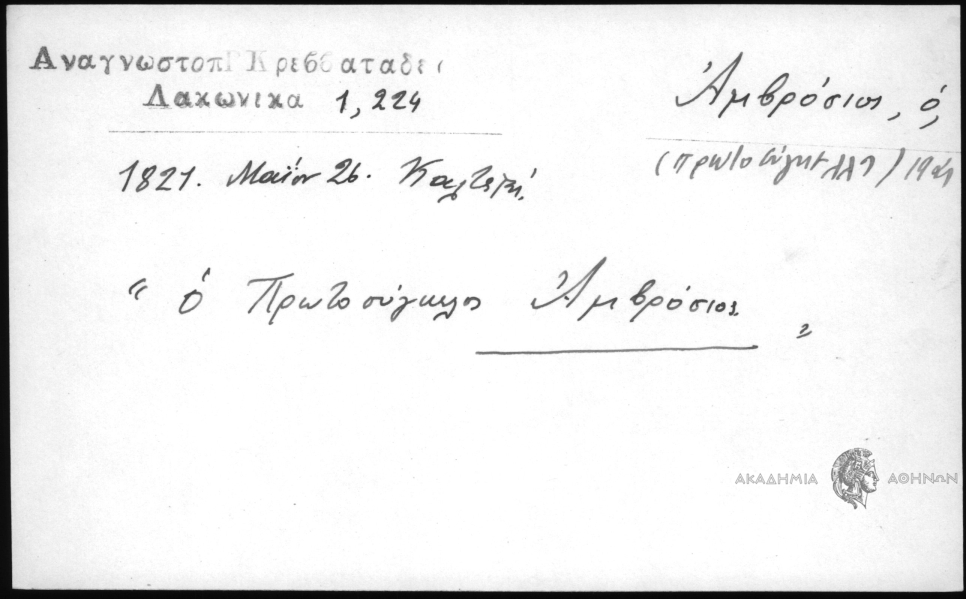 Αναγνωστοπ Κρεββαταδε
Λακωνικα 1,224
Ἀμβρόσιος, ὁ,
1821. Μαΐου 26. Καλτεζαί.
" ὁ Πρωτοσύγκελος Ἀμβρόσιος "
ΑΚΑΔΗΜΙΑ ΑΘΗΝΩΝ